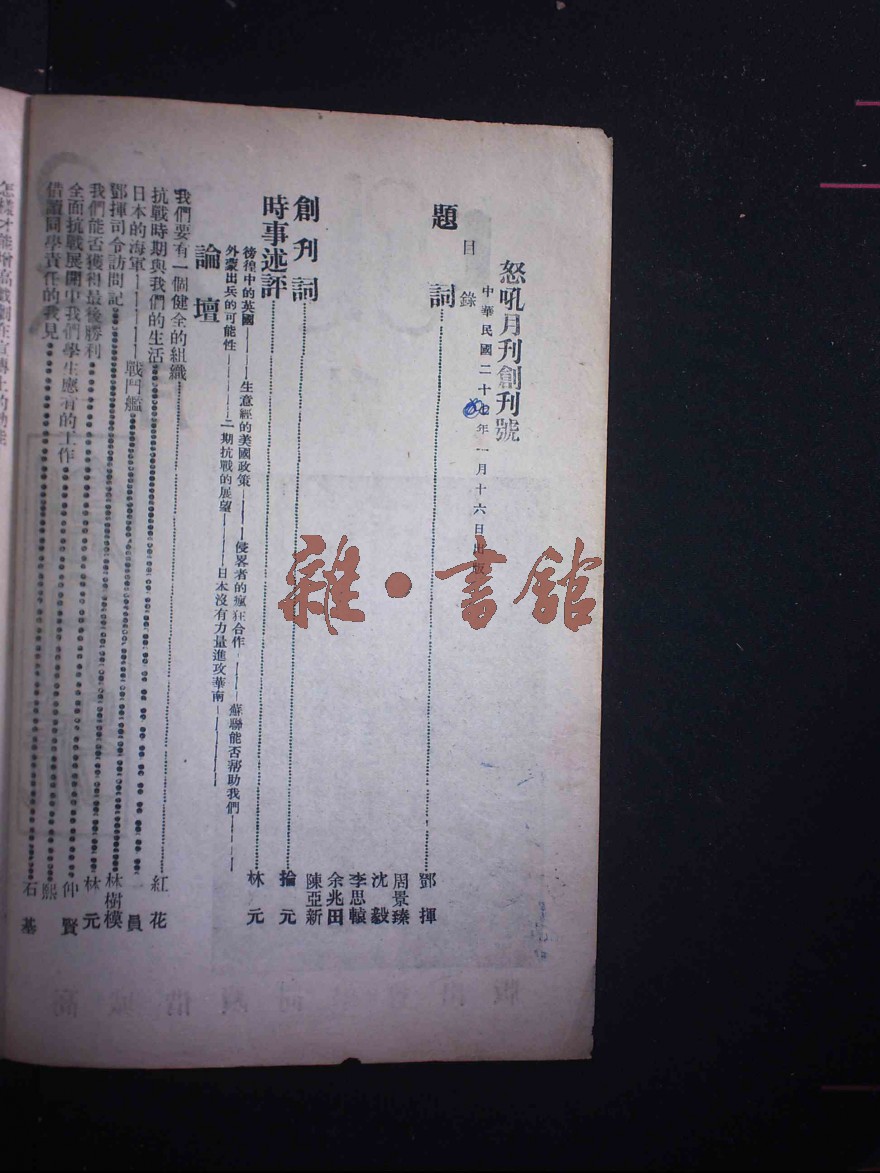 怒吼月刊創刊號
中華民國二十年一月十六日出版
目錄
題詞
鄧揮
周景臻
沈毅
李思轅
余兆田
陳亞新
創刊詞
掄元
時事述評
林元
徬徨中的英國——生意經的美國政策——侵畧者的瘋狂合作——蘇聯能否幫助我們——
外蒙出兵的可能性——二期抗戰的展望——日本沒有力量進攻華南——
論壇
我們要有一個健全的組織
紅花
抗戰時期與我們的生活
一員
日本的海軍——戰鬥艦
林樹模
鄧揮司令訪問記
林元
我們能否獲得最後勝利
仲賢
全面抗戰展開中我們學生應有的工作
熙
借讀同學責任的我見
石基
怎樣才能增高戲劇在宣傳上的功能
雜·書館